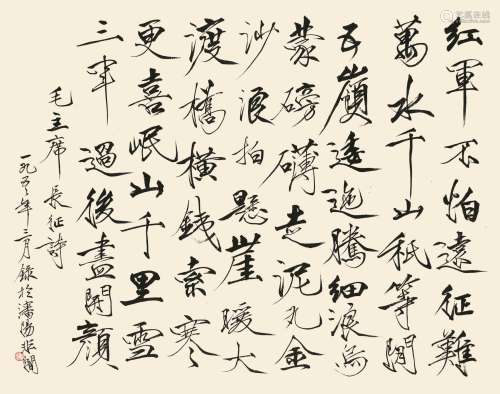 紅軍不怕遠征難
萬水千山祇等閒
五嶺逶迤騰細浪烏
蒙磅礴走泥丸金
沙浪拍懸崖暖大
渡橋橫銕索寒
更喜岷山千里雪
三軍過後盡開顏
毛主席 長征詩
一九五 年三月錄於瀋陽 非闇